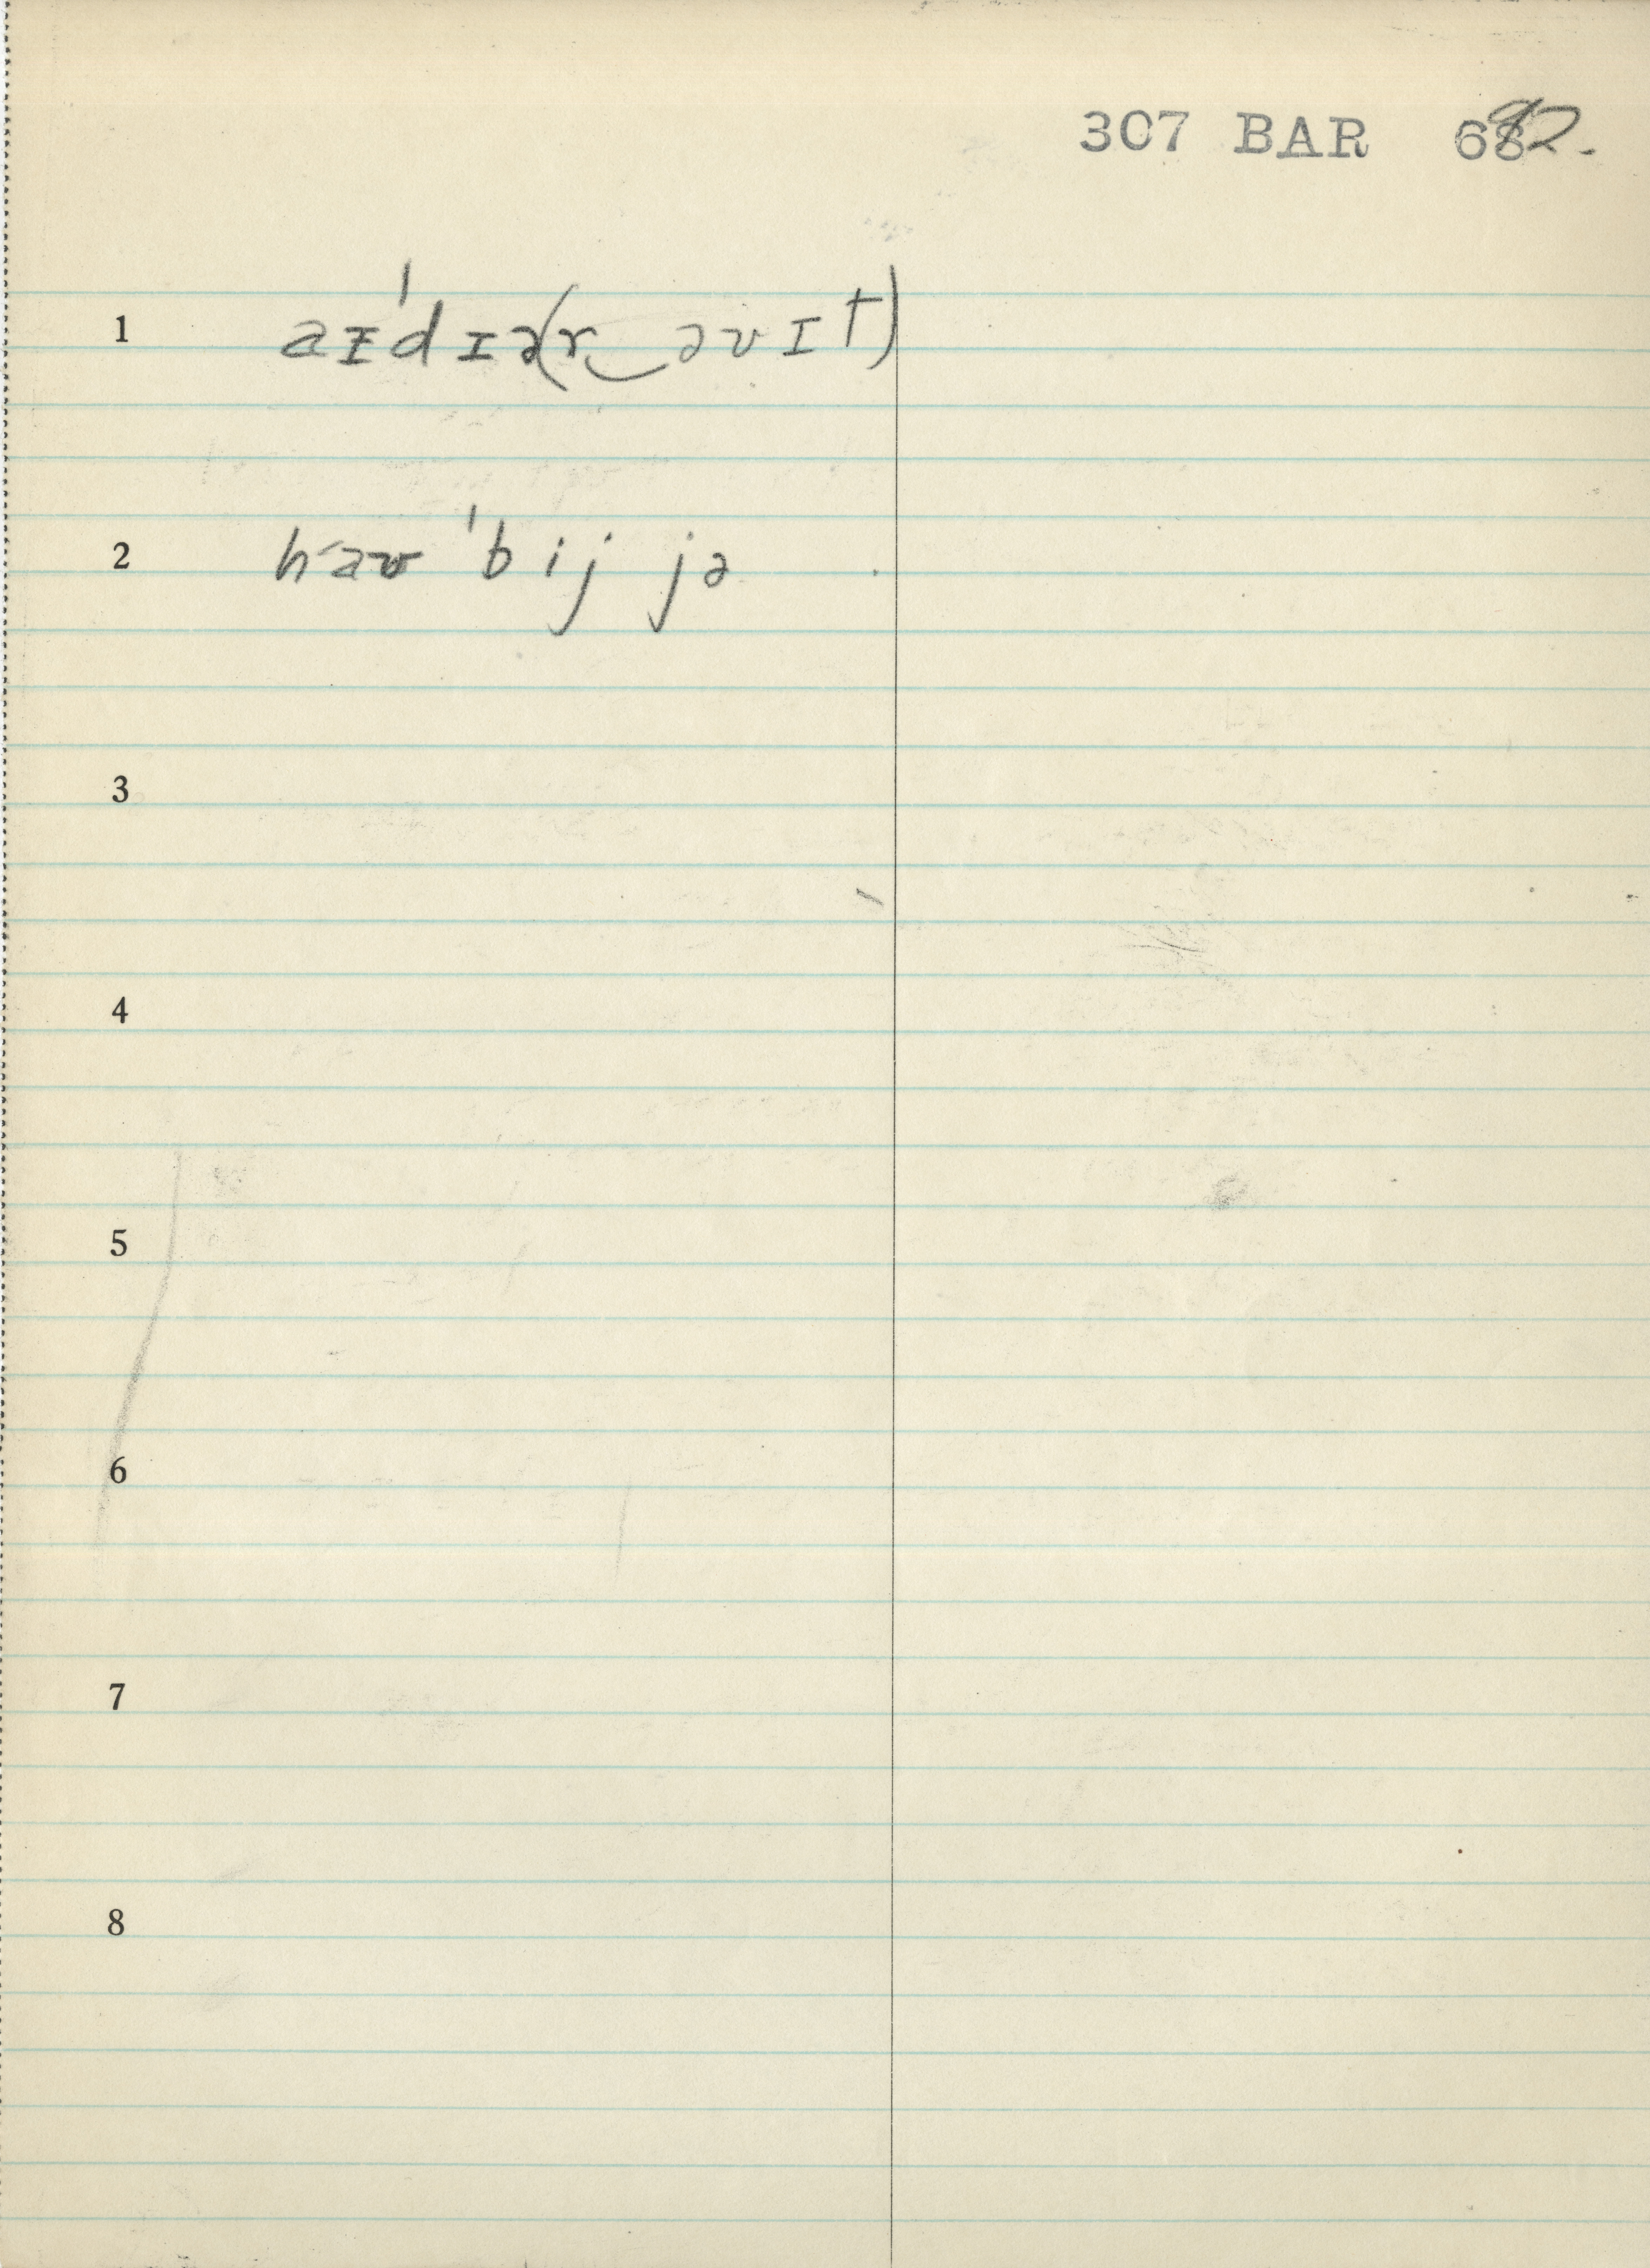 307 BAR 692.
1 aɪˈdɪə(r‿əvɪt)
2 haʊ ˈbij jə
3
4
5
6
7
8